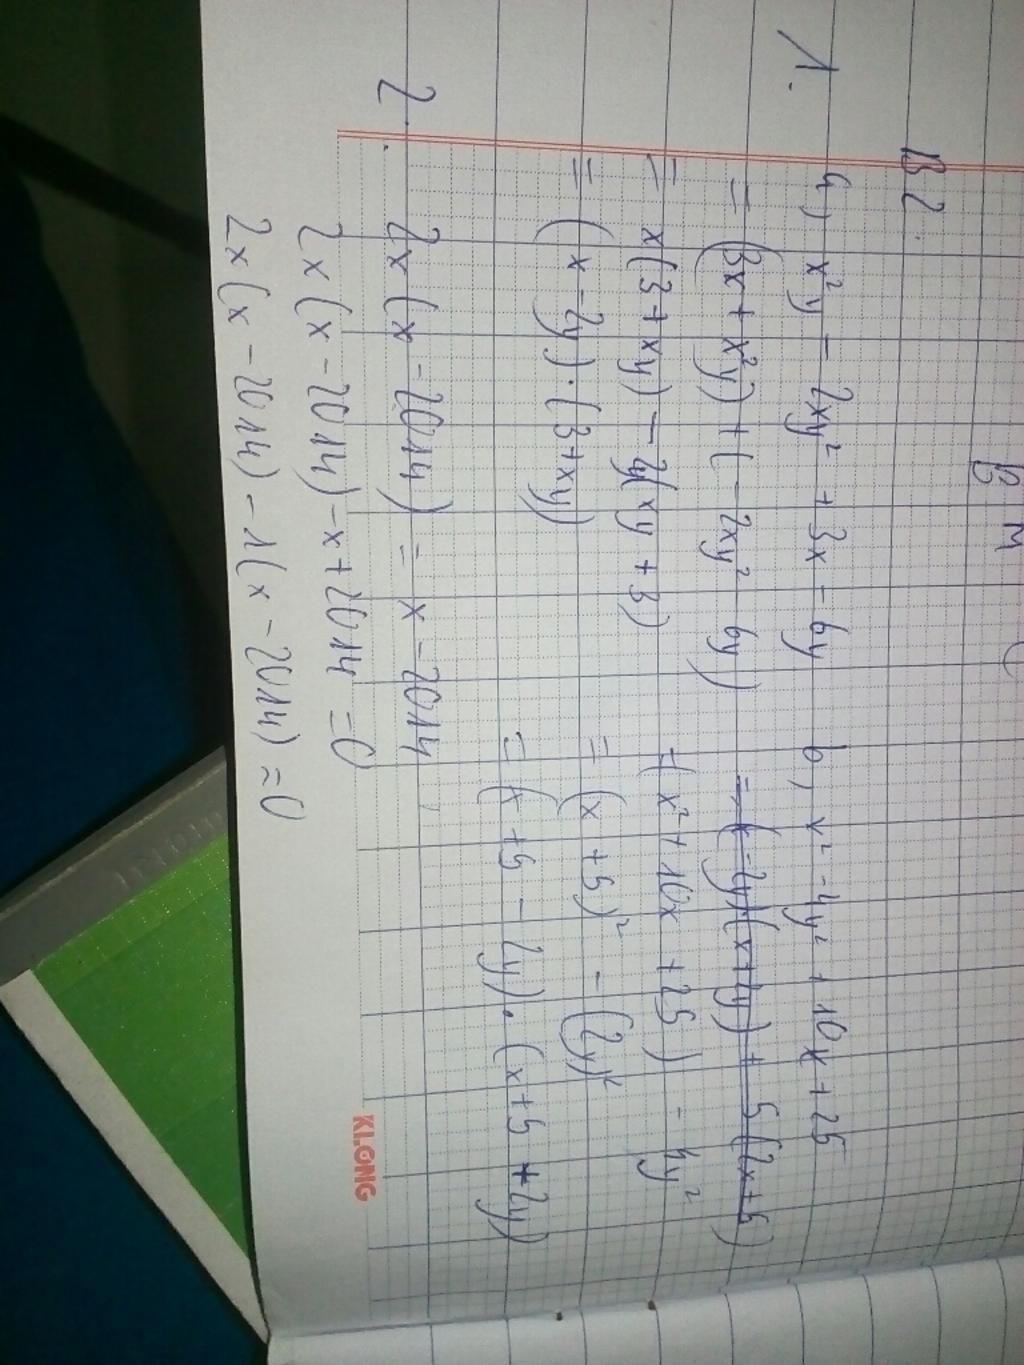 B M
B2.
1. a, x²y - 2xy² + 3x - 6y
= (3x + x²y) + (-2xy² 6y)
= x(3 + xy) - 2y(xy + 3)
= (x - 2y) · (3 + xy)
b, x² - 4y² + 10x + 25
= (x - 2y)(x + 2y) + 5(2x + 5)
= (x² + 10x + 25) - 4y²
= (x + 5)² - (2y)²
= (x + 5 - 2y) · (x + 5 + 2y)
2. 2x(x - 2014) = x - 2014
2x(x - 2014) - x + 2014 = 0
2x(x - 2014) - 1(x - 2014) = 0
KLONG